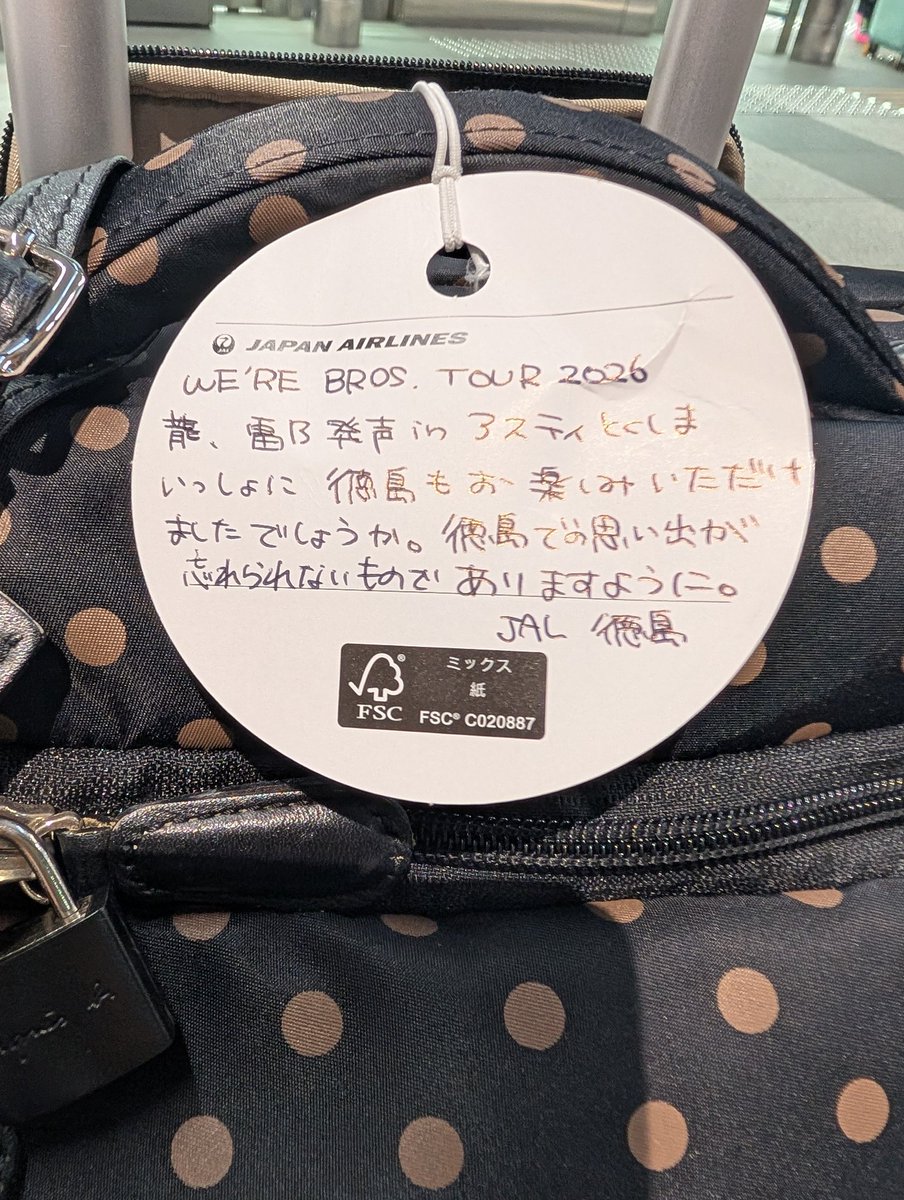 JAPAN AIRLINES
WE'RE BROS. TOUR 2026
龍、雷乃発声 in アスティとくしま
いっしょに 徳島もお楽しみいただけ
ましたでしょうか。徳島でのお思い出が
忘れられないものでありますように。
JAL 徳島
FSC®
ミックス
紙
FSC® C020887
agnès b.